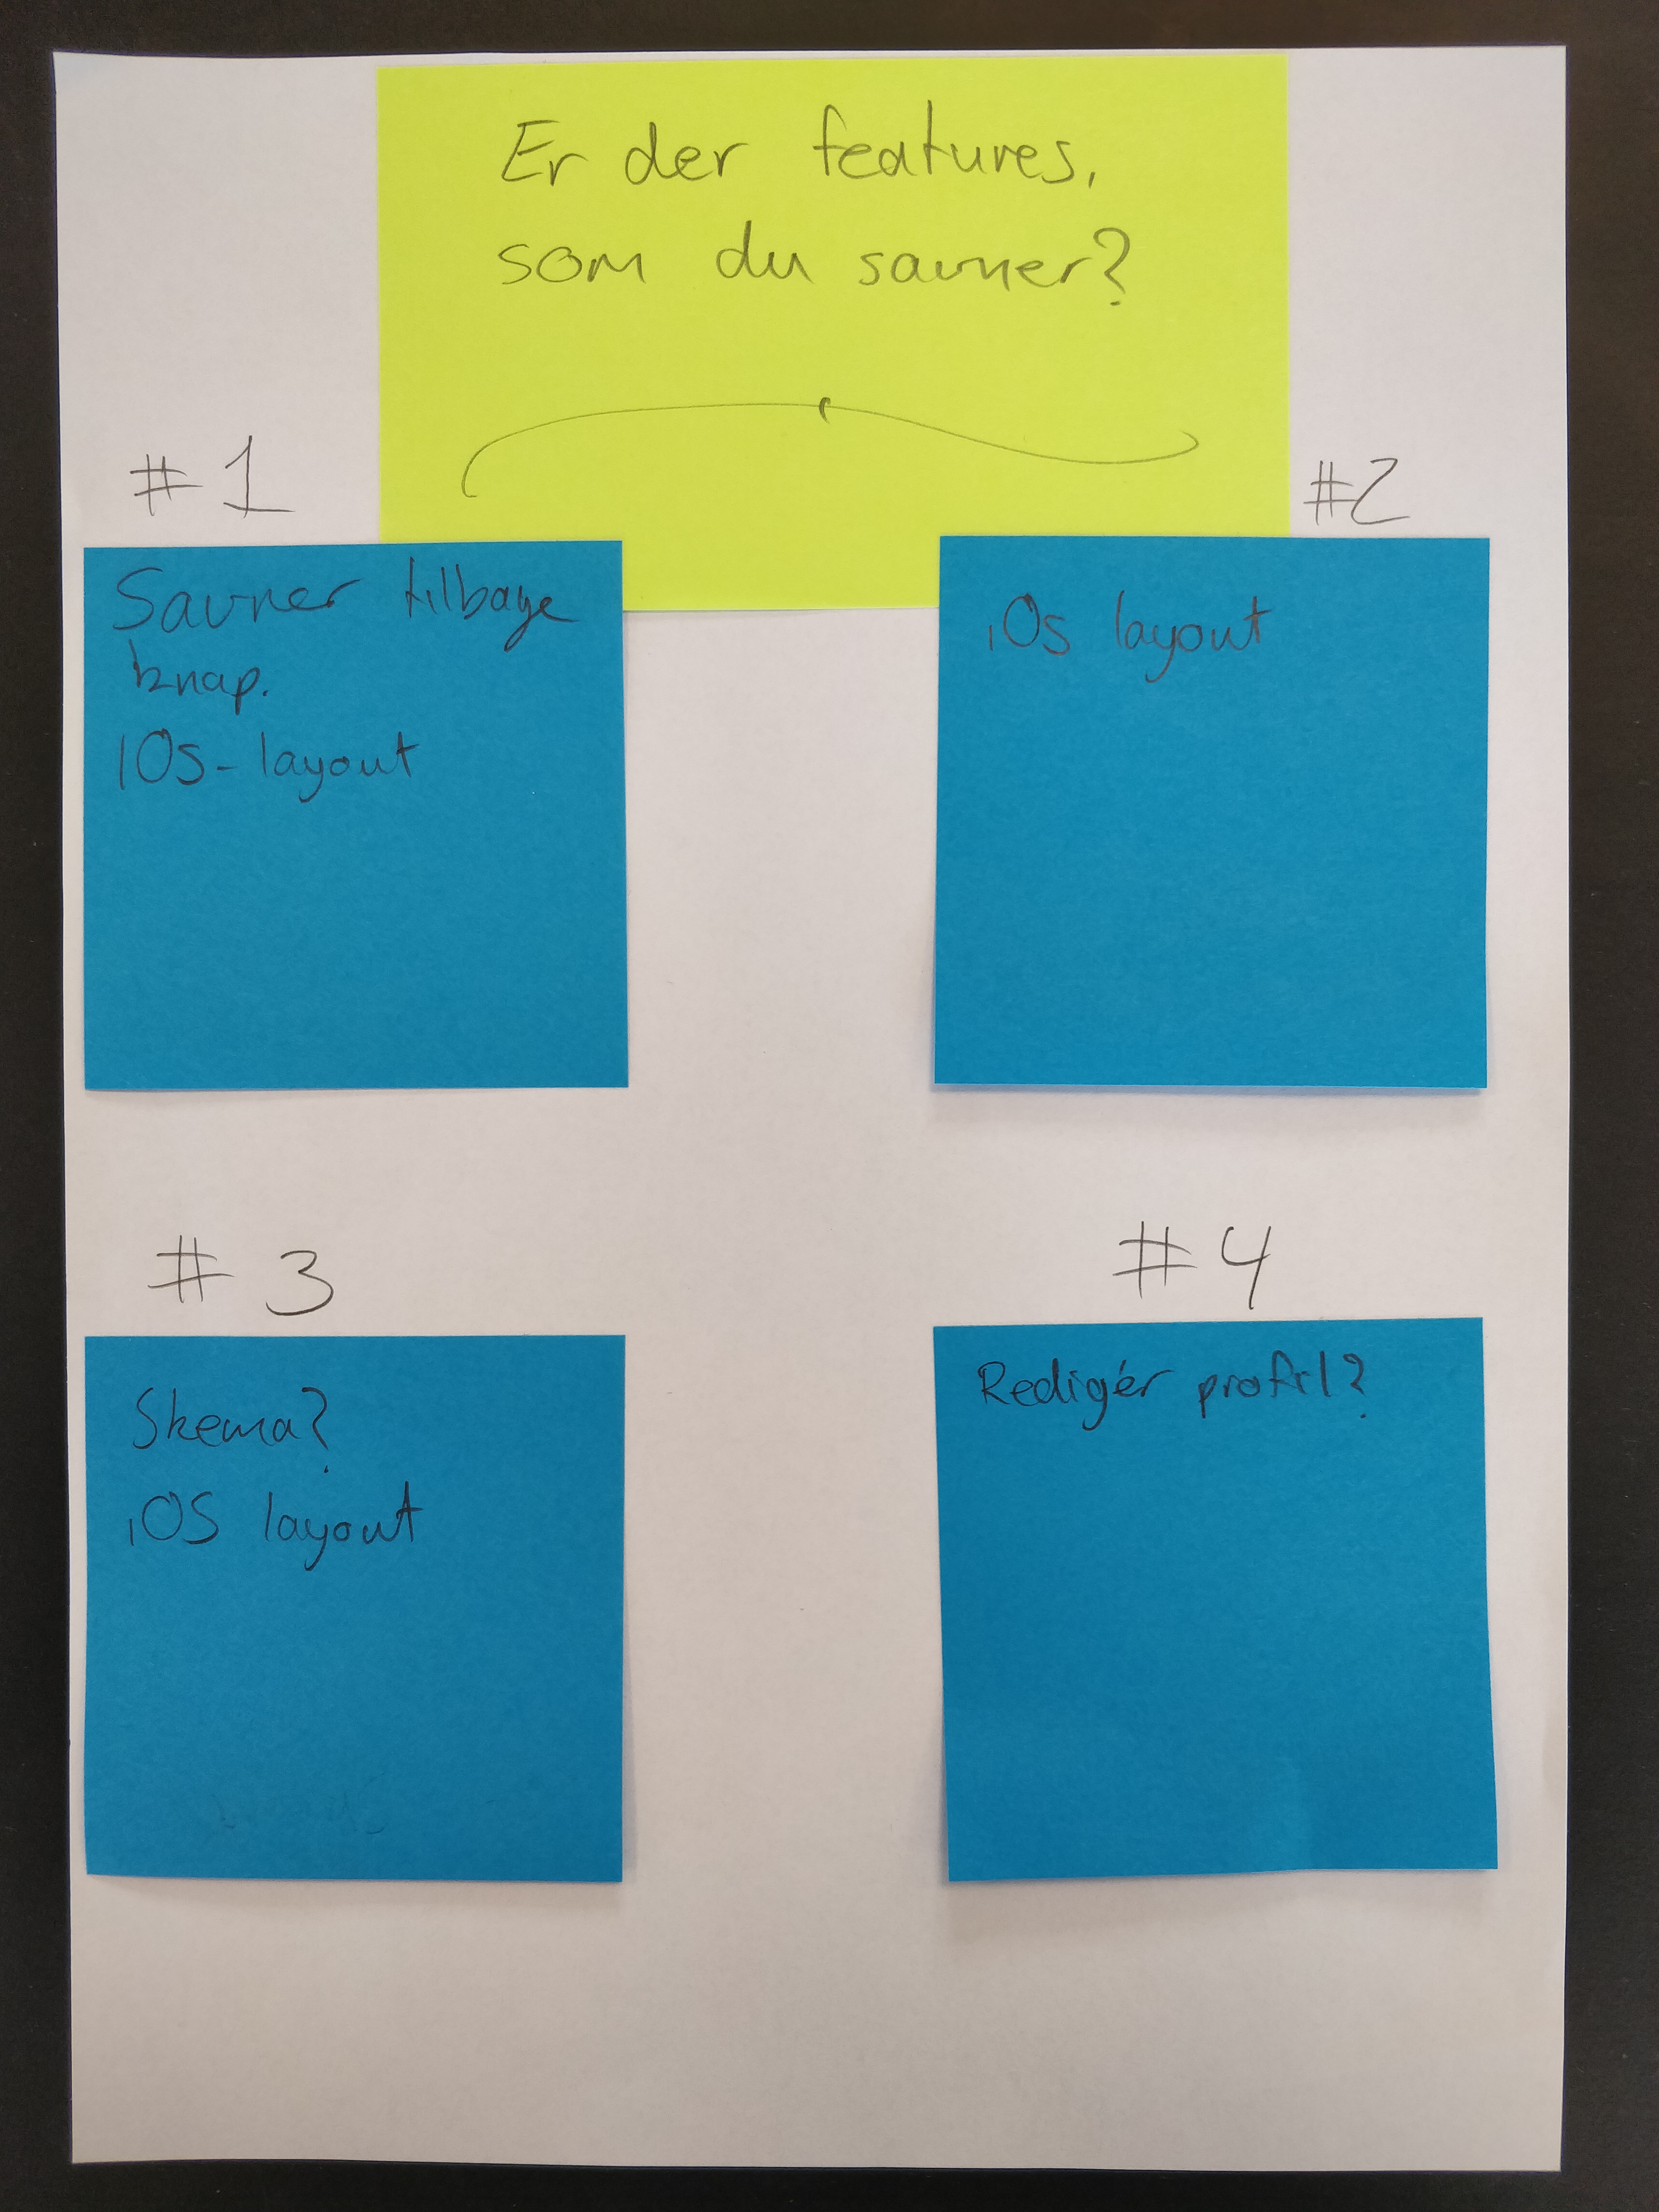 Er der features,
som du savner?
#1
Savner tilbage
knap.
IOs-layout
#2
iOs layout
#3
Skema?
iOS layout
#4
Redigér profil?